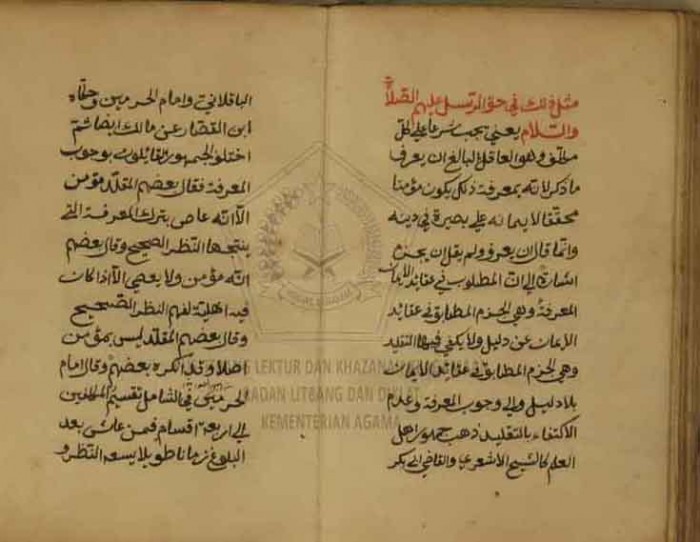 مثل ذلك في حق الرسل عليهم الصلاة
والسلام يعني يجب شرعا على كل
مكلف وهو العاقل البالغ ان يعرف
ما ذكر لانه بمعرفة ذلك يكون مؤمنا
محققا لايمانه على بصيرة في دينه
وانما قال ان يعرف ولم يقل ان يجزم
اشارة الى ان المطلوب في عقائد الايمان
المعرفة وهي الجزم المطابق في عقائد
الايمان عن دليل ولا يكفي فيها التقليد
وهي الجزم المطابق في عقائد الايمان
بلا دليل والى وجوب المعرفة وعدم
الاكتفاء بالتقليد ذهب جمهور اهل
العلم كالشيخ الاشعري والقاضي ابي بكر
الباقلاني وامام الحرمين وحكاه
ابن القصار عن مالك ايضا ثم
اختلف الجمهور القائلون بوجوب
المعرفة فقال بعضهم المقلد مؤمن
الا انه عاص بترك المعرفة التي
ينتجها النظر الصحيح وقال بعضهم
انه مؤمن ولا يعصي الا اذا كان
فيه اهلية لفهم النظر الصحيح
وقال بعضهم المقلد ليس بمؤمن
اصلا وقد انكره بعضهم وقال امام
الحرمين في الشامل تقسيم المكلفين
الى اربعة اقسام فمن عاش بعد
البلوغ زمانا طويلا يسعه النظر و
LEKTUR DAN KHAZANAH
BADAN LITBANG DAN DIKLAT
KEMENTERIAN AGAMA